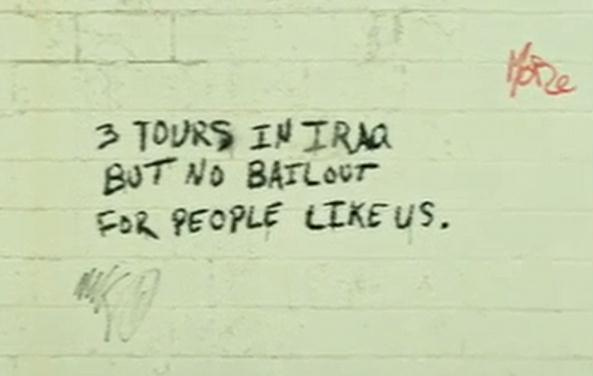 3 TOURS IN IRAQ
BUT NO BAILOUT
FOR PEOPLE LIKE US.